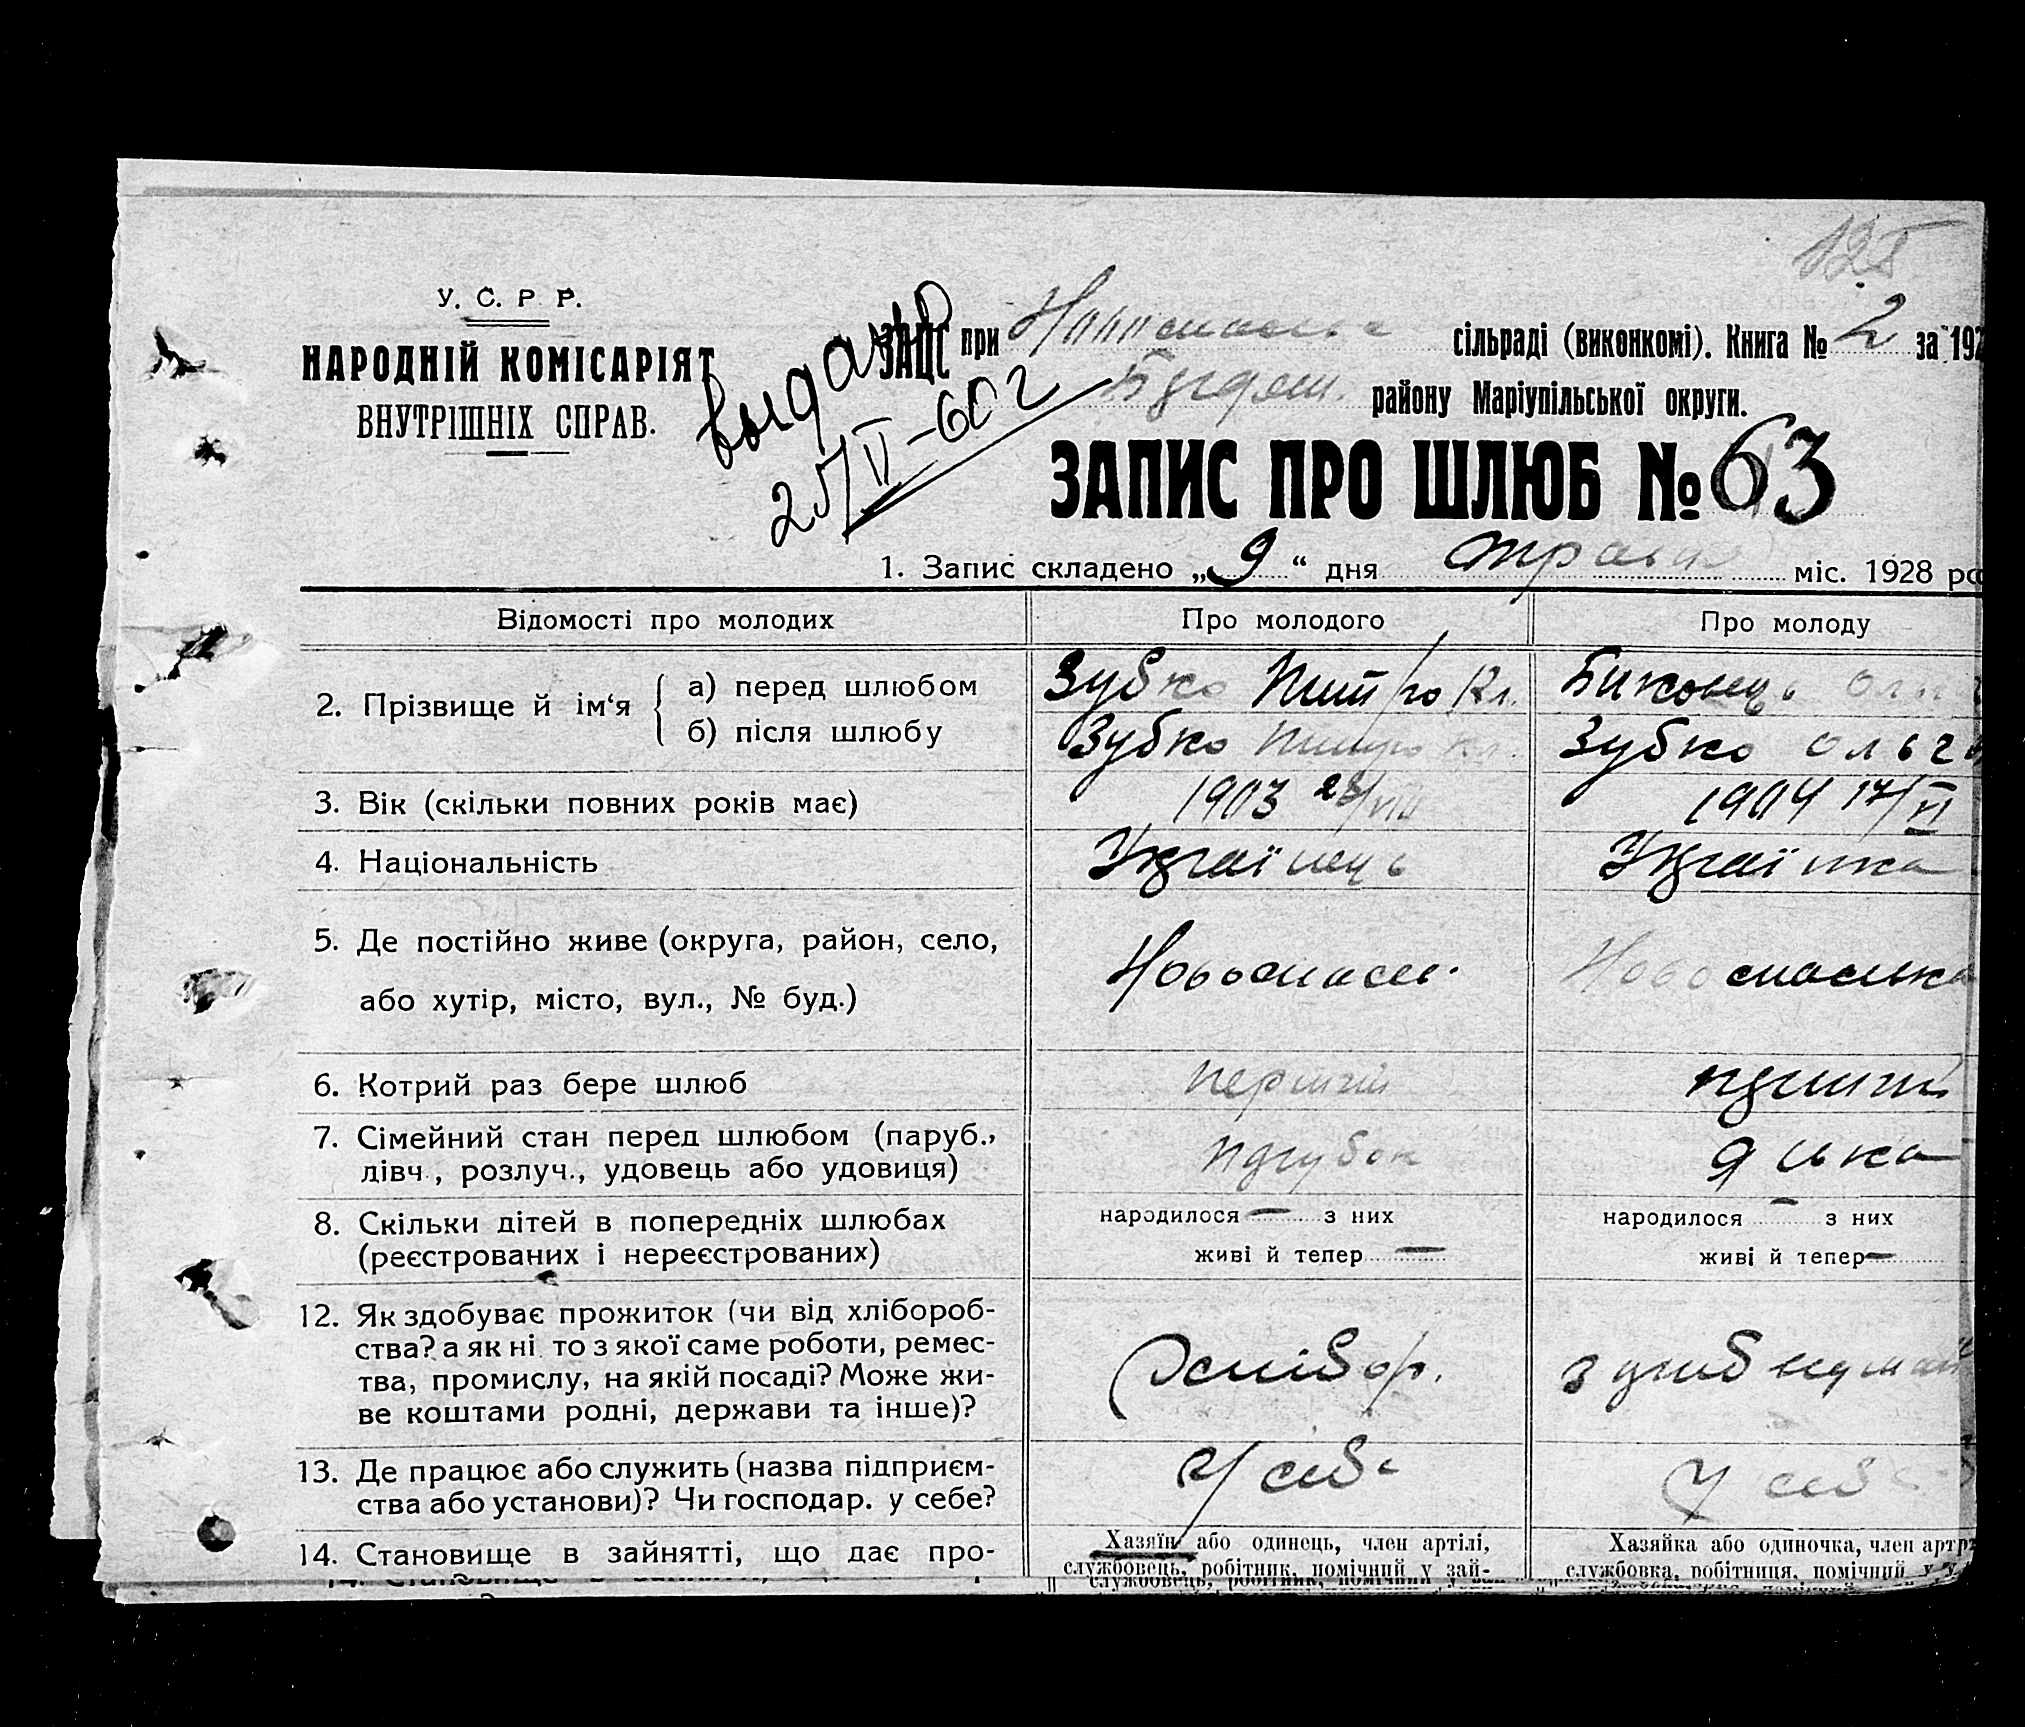 У. С. Р. Р.
НАРОДНІЙ КОМІСАРІЯТ
ВНУТРІШНІХ СПРАВ.
ЗАЦС при сільраді (виконкомі). Книга № 2 за 192
району Маріупільської округи.
выдано
25/II-60 г
ЗАПИС ПРО ШЛЮБ № 63
1. Запис складено „9“ дня травня міс. 1928 ро
Відомості про молодих Про молодого Про молоду
2. Прізвище й ім‘я { а) перед шлюбом Зубко Биковець
б) після шлюбу Зубко Зубко Ольга
3. Вік (скільки повних років має) 1903 28/VIII 1904 17/VI
4. Національність Українець Українка
5. Де постійно живе (округа, район, село, або хутір, місто, вул., № буд.) Новоспасы. Новоспасівка
6. Котрий раз бере шлюб перший перший
7. Сімейний стан перед шлюбом (паруб., дівч., розлуч., удовець або удовиця) парубок дівка
8. Скільки дітей в попередніх шлюбах (реєстрованих і нереєстрованих) народилося — з них живі й тепер — народилося — з них живі й тепер —
12. Як здобуває прожиток (чи від хлібороб-
ства? а як ні то з якої саме роботи, ремес-
тва, промислу, на якій посаді? Може жи-
ве коштами родні, держави та інше)?
Хлібор.
13. Де працює або служить (назва підприєм-
ства або установи)? Чи господар. у себе?
У себе У себе
14. Становище в зайнятті, що дає про-
Хазяїн або одинець, член артілі,
службовець, робітник, помічний у зай-
Хазяйка або одиночка, член арт
службовка, робітниця, помічний у